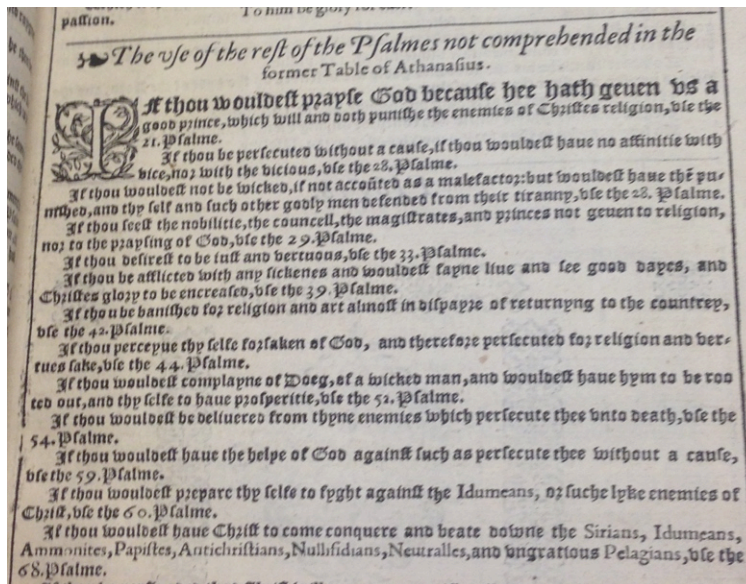 passion.
To him be glory for euer
The vse of the rest of the Psalmes not comprehended in the
former Table of Athanasius.
If thou wouldest prayse God because hee hath geuen vs a
good prince, which will and doth punishe the enemies of Christes religion, vse the
21. Psalme.
If thou be persecuted without a cause, if thou wouldest haue no affinitie with
vice, nor with the vicious, vse the 28. Psalme.
If thou wouldest not be wicked, if not accoūted as a malefactor: but wouldest haue thē pu-
nished, and thy self and such other godly men defended from their tiranny, vse the 28. Psalme.
If thou seest the nobilitie, the councell, the magistrates, and princes not geuen to religion,
nor to the praysing of God, vse the 29. Psalme.
If thou desirest to be iust and vertuous, vse the 33. Psalme.
If thou be afflicted with any sickenes and wouldest fayne liue and see good dayes, and
Christes glory to be encreased, vse the 39. Psalme.
If thou be banished for religion and art almost in dispayre of returnyng to the countrey,
vse the 42. Psalme.
If thou perceyue thy selfe forsaken of God, and therefore persecuted for religion and ver-
tues sake, vse the 44. Psalme.
If thou wouldest complayne of Doeg, of a wicked man, and wouldest haue hym to be roo
ted out, and thy selfe to haue prosperitie, vse the 52. Psalme.
If thou wouldest be deliuered from thyne enemies which persecute thee vnto death, vse the
54. Psalme.
If thou wouldest haue the helpe of God against such as persecute thee without a cause,
vse the 59. Psalme.
If thou wouldest prepare thy selfe to fyght against the Idumeans, or suche lyke enemies of
Christ, vse the 60. Psalme.
If thou wouldest haue Christ to come conquere and beate downe the Sirians, Idumeans,
Ammonites, Papistes, Antichristians, Nullifidians, Neutralles, and vngratious Pelagians, vse the
68. Psalme.